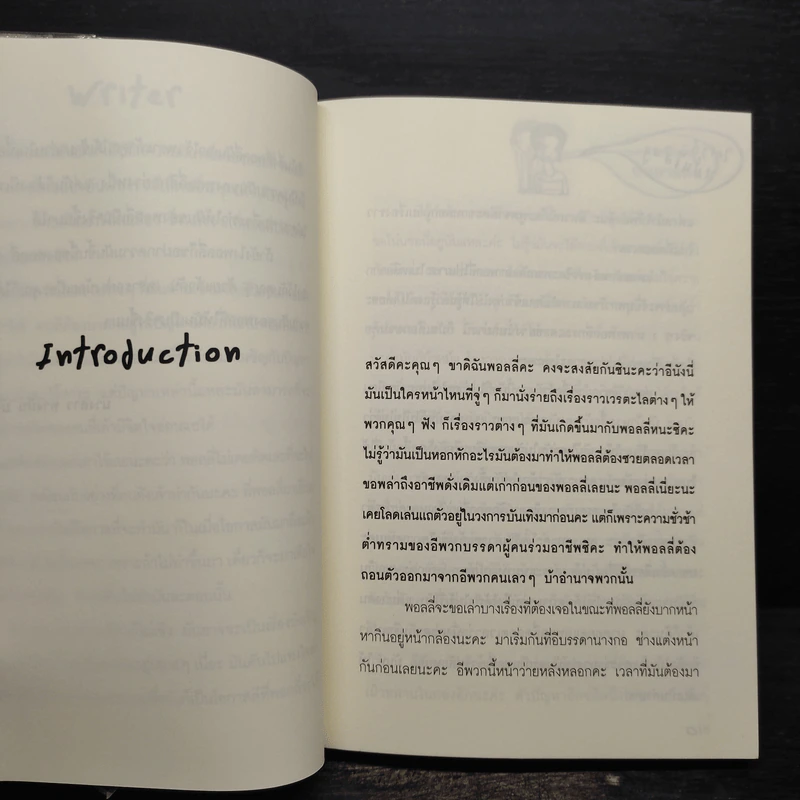 Introduction
สวัสดีคะคุณๆ ขาดิฉันพอลลี่คะ คงจะสงสัยกันซินะคะว่าอีนังนี่
มันเป็นใครหน้าไหนที่จู่ๆ ก็มานั่งร่ายถึงเรื่องราวเวรตะไลต่างๆ ให้
พวกคุณๆ ฟัง ก็เรื่องราวต่างๆ ที่มันเกิดขึ้นมากับพอลลี่หนะซิคะ
ไม่รู้ว่ามันเป็นหอกหักอะไรมันต้องมาทำให้พอลลี่ต้องซวยตลอดเวลา
ขอพล่าถึงอาชีพดั่งเดิมแต่เก่าก่อนของพอลลี่เลยนะ พอลลี่เนี่ยะนะ
เคยโลดเล่นแถตัวอยู่ในวงการบันเทิงมาก่อนคะ แต่ก็เพราะความชั่วช้า
ต่ำทรามของอีพวกบรรดาผู้คนร่วมอาชีพซิคะ ทำให้พอลลี่ต้อง
ถอนตัวออกมาจากอีพวกคนเลวๆ บ้าอำนาจพวกนั้น
พอลลี่จะขอเล่าบางเรื่องที่ต้องเจอในขณะที่พอลลี่ยังบากหน้า
หากินอยู่หน้ากล้องนะคะ มาเริ่มกันที่อีบรรดานางกอ ช่างแต่งหน้า
กันก่อนเลยนะคะ อีพวกนี้หน้าว่ายหลังหลอกคะ เวลาที่มันต้องมา